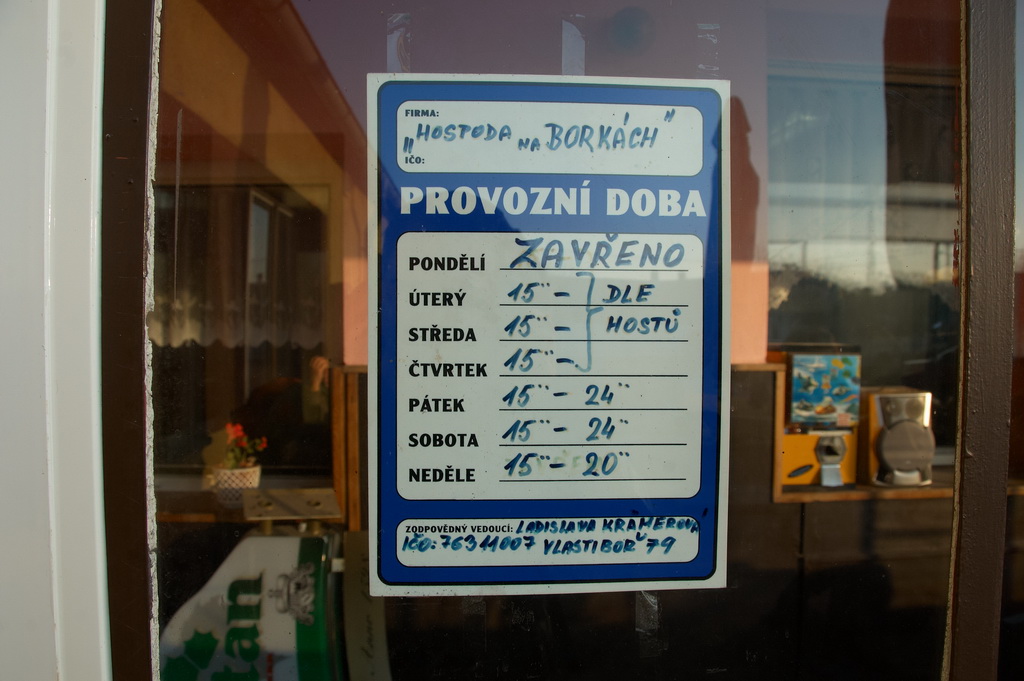 FIRMA:
„HOSTODA NA BORKÁCH"
IČO:
PROVOZNÍ DOBA
PONDĚLÍ ZAVŘENO
ÚTERÝ 15¨ - DLE
STŘEDA 15¨ - HOSTŮ
ČTVRTEK 15¨ -
PÁTEK 15¨ - 24¨
SOBOTA 15¨ - 24¨
NEDĚLE 15¨ - 20¨
ZODPOVĚDNÝ VEDOUCÍ: LADISLAVA KRÁMEROVÁ
IČO: 76311007 VLASTIBOŘ 79
tan